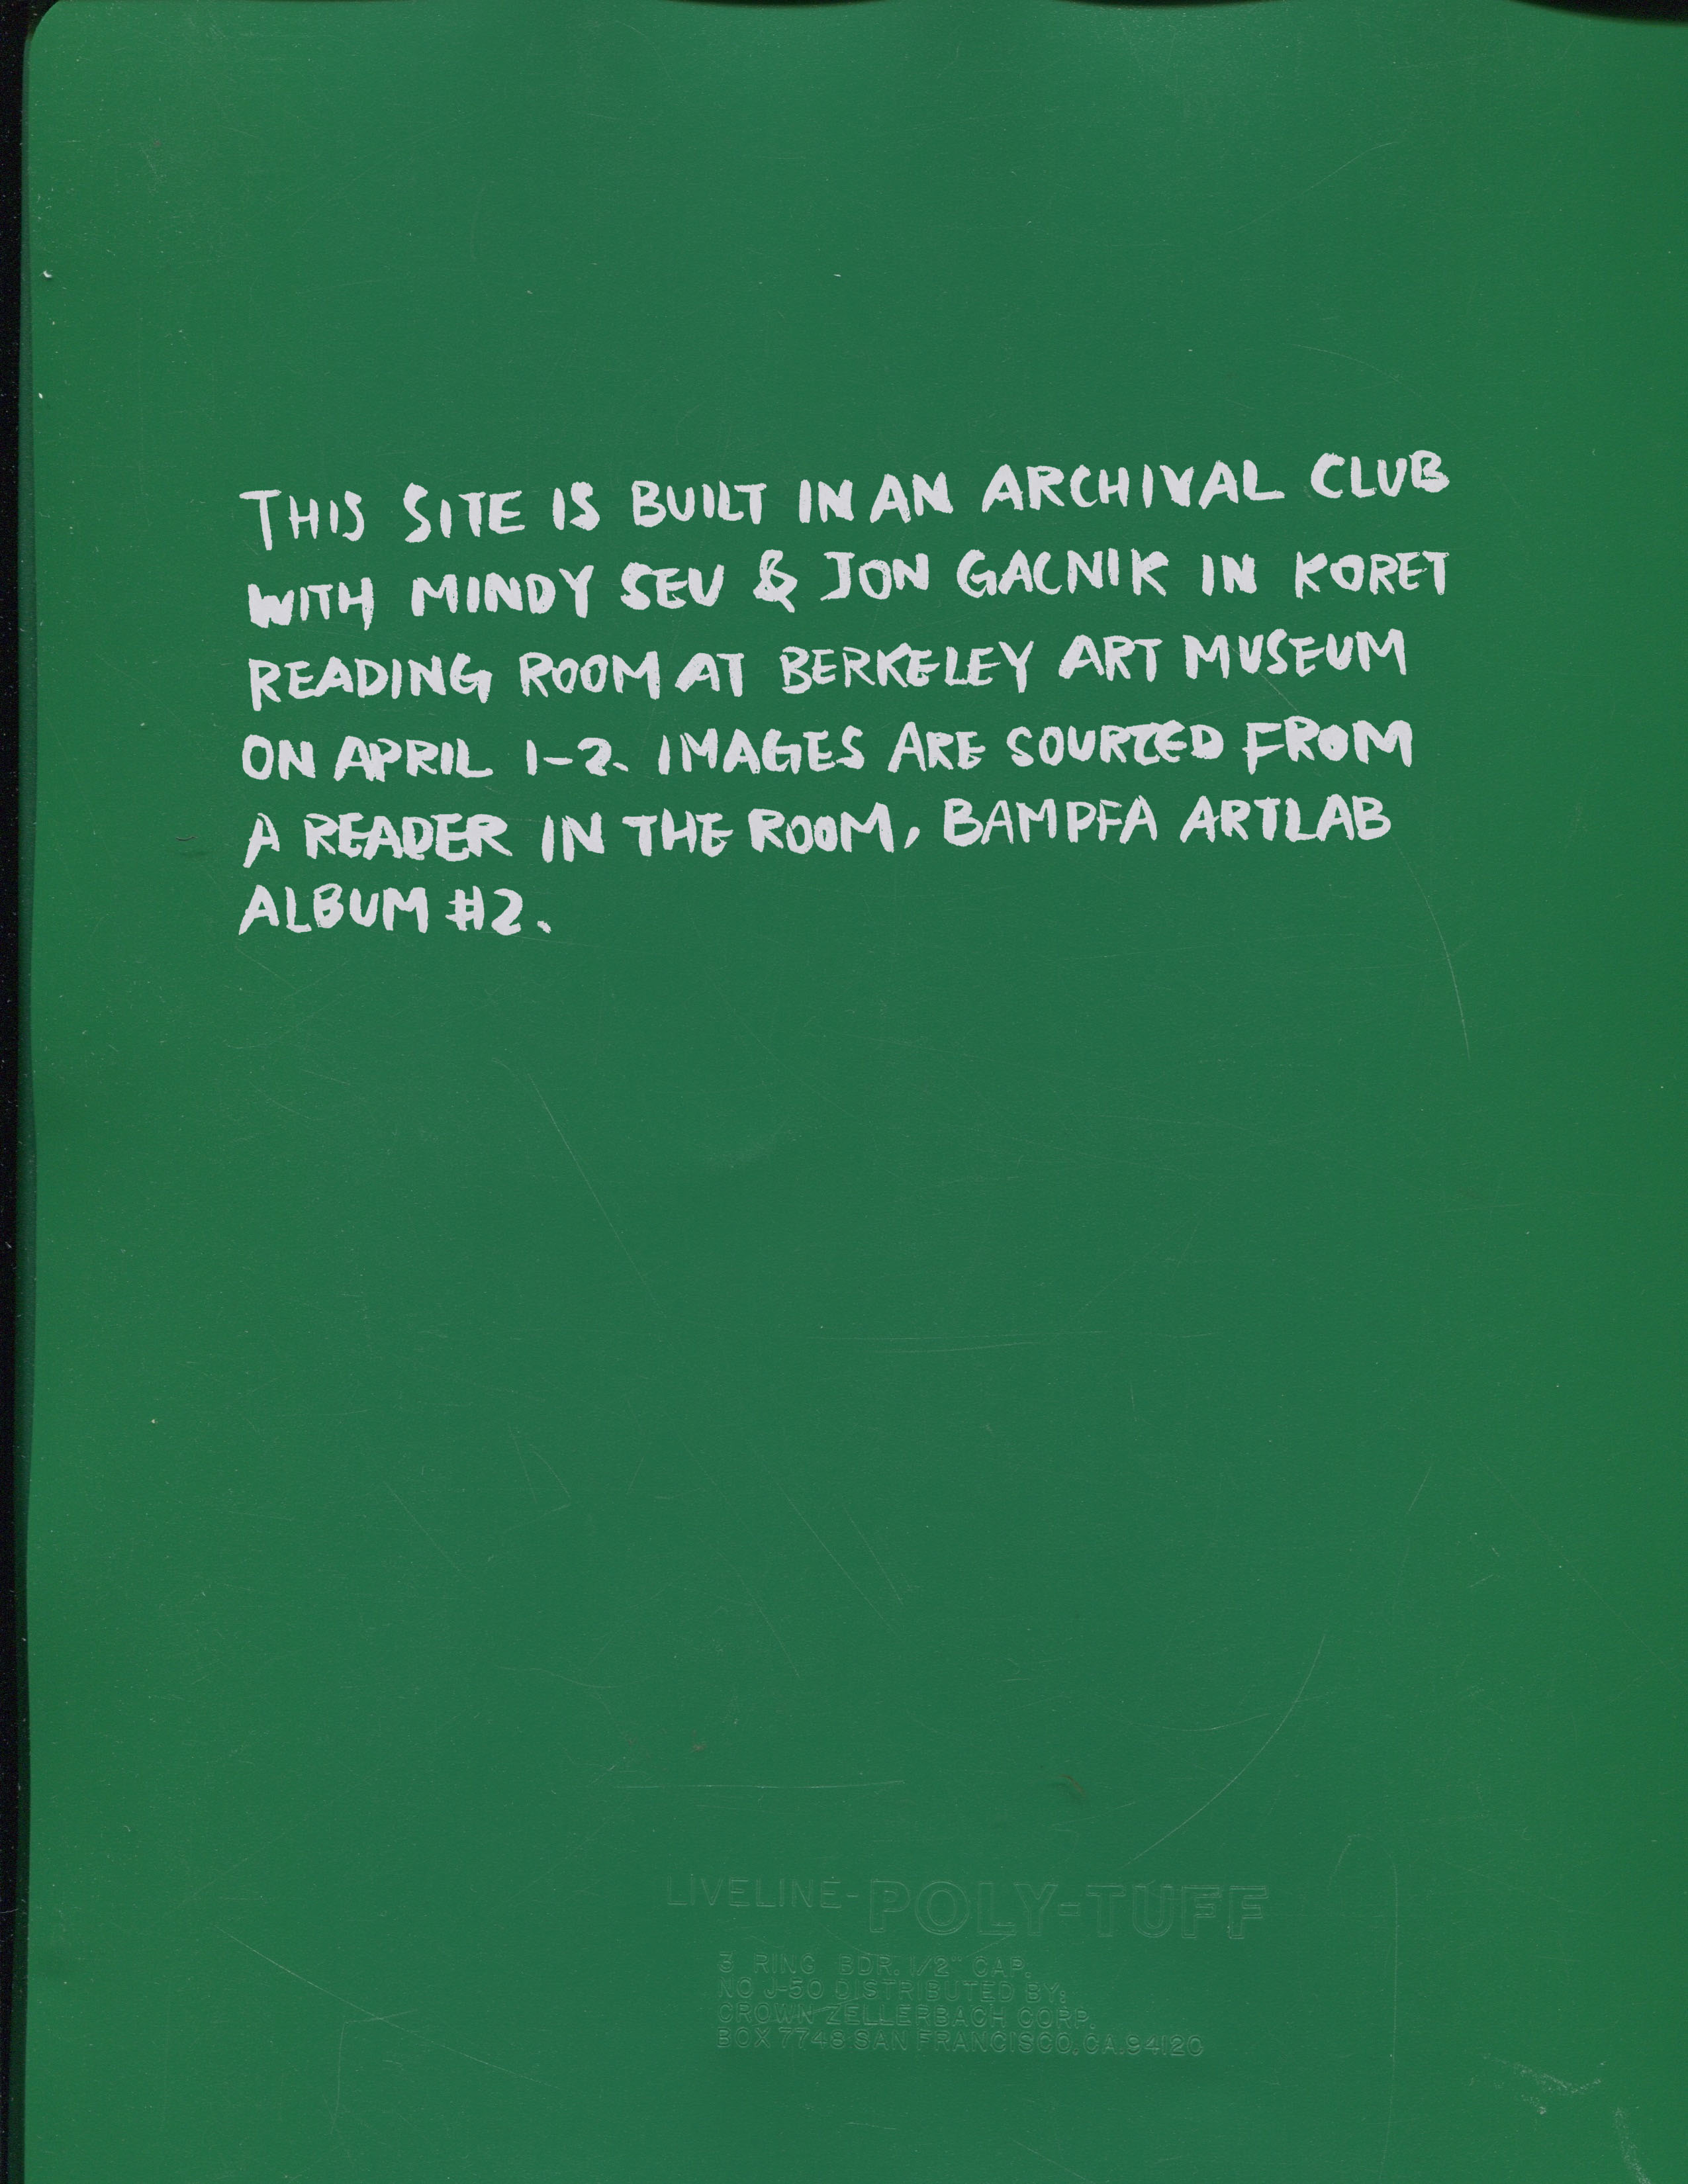 THIS SITE IS BUILT IN AN ARCHIVAL CLUB
WITH MINDY SEU & JON GACNIK IN KORET
READING ROOM AT BERKELEY ART MUSEUM
ON APRIL 1-2. IMAGES ARE SOURCED FROM
A READER IN THE ROOM, BAMPFA ARTLAB
ALBUM #2.
LIVELINE-POLY-TUFF
3 RING BDR. 1/2" CAP.
NO J-50 DISTRIBUTED BY:
CROWN ZELLERBACH CORP.
BOX 7749 SAN FRANCISCO, CA. 94120